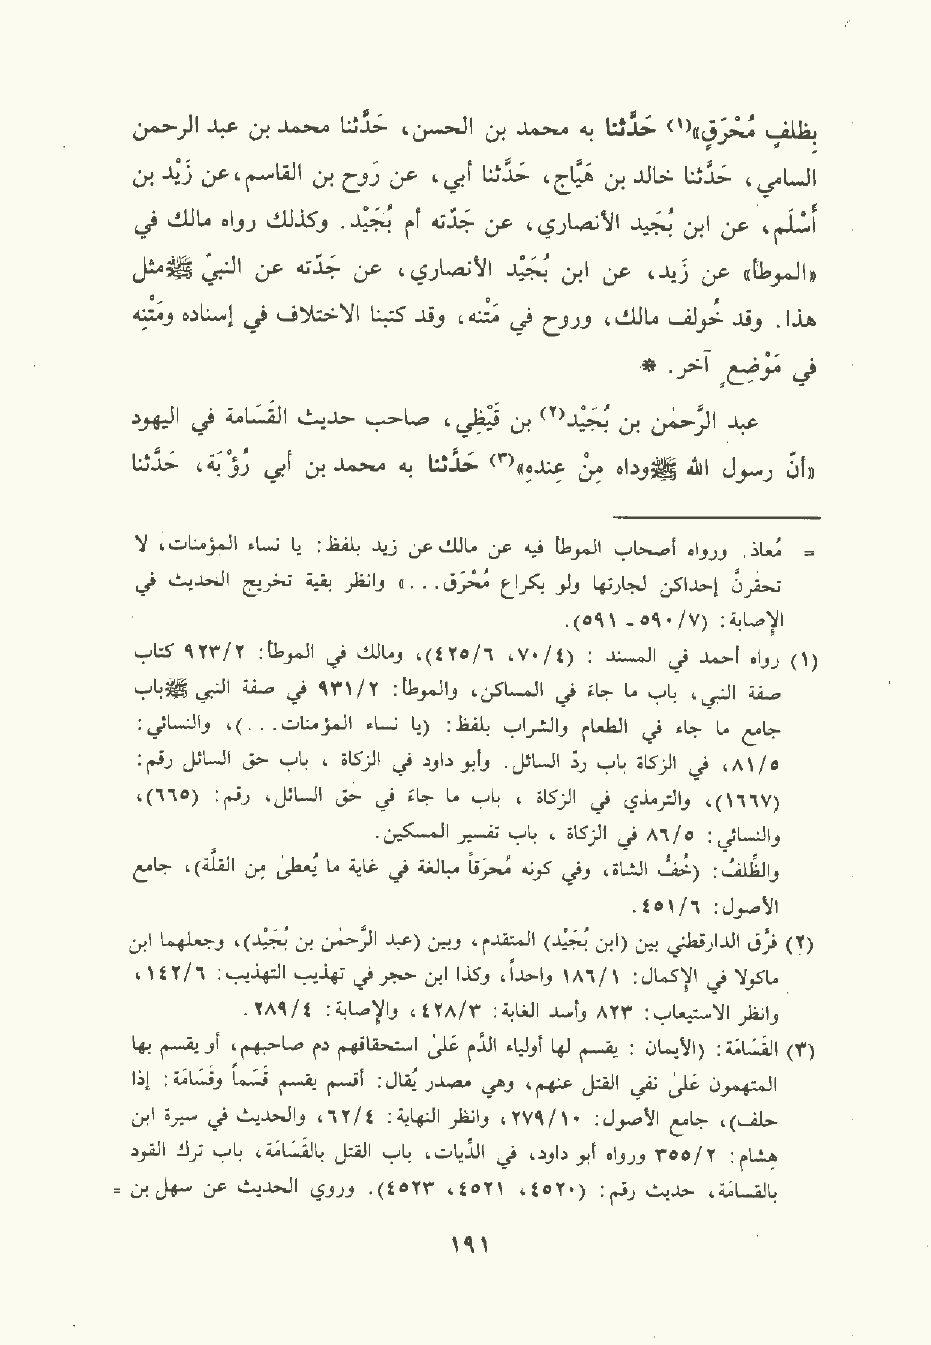 بِظلفٍ مُحْرَقٍ»(١) حَدَّثنا به محمد بن الحسن، حَدَّثنا محمد بن عبد الرحمن
السامي، حَدَّثنا خالد بن هَيَّاج، حَدَّثنا أبي، عن رَوح بن القاسم، عن زَيْد بن
أَسْلَم، عن ابن بُجَيد الأنصاري، عن جَدّته أم بُجَيْد. وكذلك رواه مالك في
«الموطأ» عن زَيد، عن ابن بُجَيْد الأنصاري، عن جَدّته عن النبيّ ﷺ مثل
هذا. وقد خُولف مالك، وروح في مَتْنه، وقد كتبنا الاختلاف في إسناده ومَتْنِه
في مَوْضِعٍ آخر. *
عبد الرَّحمٰن بن بُجَيْد(٢) بن قَيْظِي، صاحب حديث القَسَامة في اليهود
«أنّ رسول الله ﷺ وداه مِنْ عِندِهِ»(٣) حَدَّثنا به محمد بن أبي رُؤْبَة، حَدَّثنا
= مُعاذ. ورواه أصحاب الموطأ فيه عن مالك عن زيد بلفظ: يا نساء المؤمنات، لا
تحقرنّ إحداكن لجارتها ولو بكراع مُحْرَق...» وانظر بقية تخريج الحديث في
الإصابة: (٧/ ٥٩٠ - ٥٩١).
(١) رواه أحمد في المسند : (٤/ ٧٠، ٦/ ٤٢٥)، ومالك في الموطأ: ٢/ ٩٢٣ كتاب
صفة النبي، باب ما جاء في المساكن، والموطأ: ٢/ ٩٣١ في صفة النبي ﷺ باب
جامع ما جاء في الطعام والشراب بلفظ: (يا نساء المؤمنات...)، والنسائي:
٥/ ٨١، في الزكاة باب ردّ السائل. وأبو داود في الزكاة ، باب حق السائل رقم:
(١٦٦٧)، والترمذي في الزكاة ، باب ما جاء في حق السائل، رقم: (٦٦٥)،
والنسائي: ٥/ ٨٦ في الزكاة ، باب تفسير المسكين.
والظِّلفُ: (خُفُّ الشاة، وفي كونه مُحرَقاً مبالغة في غاية ما يُعطىٰ من القلَّة)، جامع
الأصول: ٦/ ٤٥١.
(٢) فرَّق الدارقطني بين (ابن بُجَيْد) المتقدم، وبين (عبد الرَّحمٰن بن بُجَيْد)، وجعلهما ابن
ماكولا في الإكمال: ١/ ١٨٦ واحداً، وكذا ابن حجر في تهذيب التهذيب: ٦/ ١٤٢،
وانظر الاستيعاب: ٨٢٣ وأسد الغابة: ٣/ ٤٢٨، والإصابة: ٤/ ٢٨٩.
(٣) القَسَامَة: (الأيمان : يقسم لها أولياء الدَّم علىٰ استحقاقهم دم صاحبهم، أو يقسم بها
المتهمون علىٰ نفي القتل عنهم، وهي مصدر يُقال: أقسم يقسم قَسَماً وقسَامَة: إذا
حلف)، جامع الأصول: ١٠/ ٢٧٩، وانظر النهاية: ٤/ ٦٢، والحديث في سيرة ابن
هشام: ٢/ ٣٥٥ ورواه أبو داود، في الدِّيات، باب القتل بالقَسَامَة، باب ترك القود
بالقسامَة، حديث رقم: (٤٥٢٠، ٤٥٢١، ٤٥٢٣). وروي الحديث عن سهل بن =
١٩١